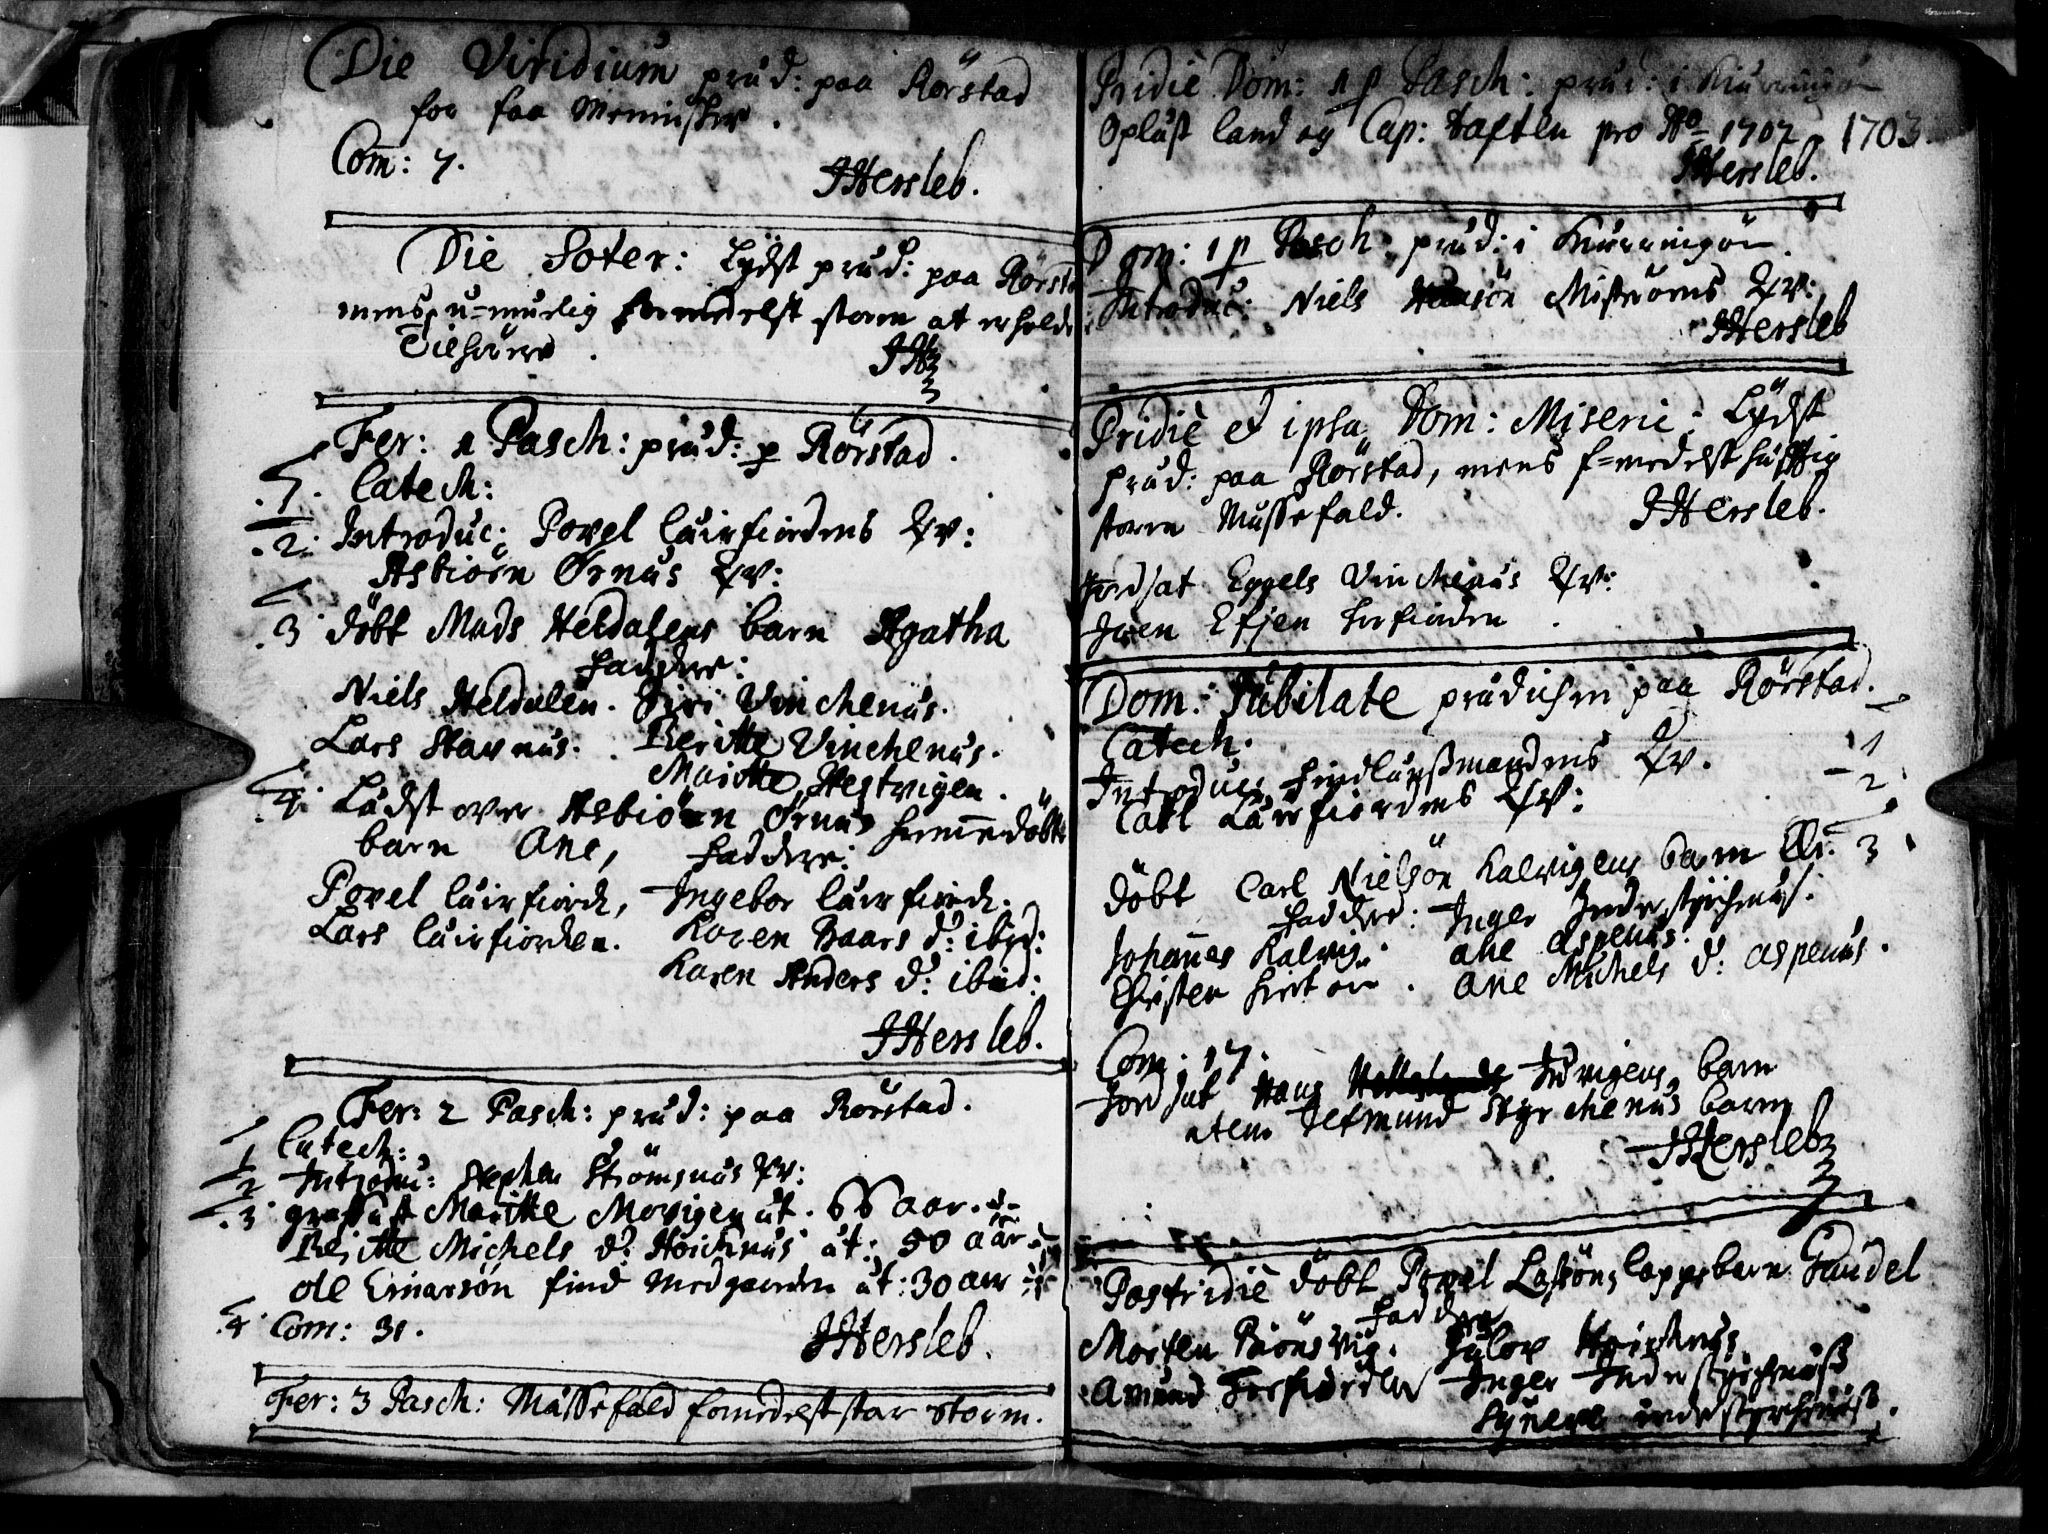 Die Viridium præd: paa Rörstad
for faa Mennisker.
Com: 7.
JHersleb.
Die Soter: Lydst præd: paa Rörsta
mens u-muelig formedelst storm at erholde
Tilhörere.
JH
Fer: 1 Pasch: præd: p Rörstad.
.1. Catech:
.2. Introduc: Povel Lairfiordens Qv:
Asbiörn Örnæs Qv:
.3 döbt Mads Heldalens barn Agatha
Faddere:
Niels Heldalen. Siri Vinchenæs.
Lars Stavnæs. Beritte Vinchenæs.
Maritte Hestvigen.
.4. Læst over Asbiörn Örnæs hiemmedöbte
barn Ane, Faddere:
Povel Lairfiord, Ingebor Lairfiord.
Lars Lairfiorden. Karen Baars d: ibid:
Karen Anders d: ibid:
JHersleb.
Fer: 2 Pasch: præd: paa Rörstad.
1 Catech:
2 Introdu: Stephen Strömsnæs Qv:
.3 græssæst Maritte Movigen æt. 66 aar.
Beritte Michels d: Höichnæs æt: 50 aar
Ole Einarsön find Medgaarden æt: 30 aar
.4 Com: 31.
JHersleb.
Fer: 3 Pasch: Messefald formedelst star storm.
Pridiè Dom: 1 p Pasch: præd: i Kierringöe
Oplæst land og Cap: taxten pro Aõ 1702 1703.
JHersleb.
Dom: 1 p Pasch: præd: i Kierringöe.
Introduc: Niels Hansön Misteörens Qv:
JHersleb
Pridiè et ipsa Dom: Miseric: Lydst
præd: paa Rörstad, mens f=medelst hefftig
storm Messefald. JHersleb.
Jordsat Eggels Vinchenæs Qv:
Iven Efjen
Dom: Jubilate prædichen paa Rörstad.
Catech. 1
Introduc: Qv. 2
Carl Lairfiordens Qv:
döbt Carl Nielsön Kalvigens barn 3
Faddere: Inger Inderstyrchnæs.
Johannes Kalvig. Ane Aspenæs.
Christen. Ane Michels d: Aspenæs.
Com: 17.
Jordsat Hans barn
item Tetmund Styrchenæs barn
JHersleb
Postridiè döbt Povel Lassöns lappebarn Gundel
Faddere
Morten Biönsvig.
Amund Inger Inderstyrchnæss
Synere inderstyrchnæss.